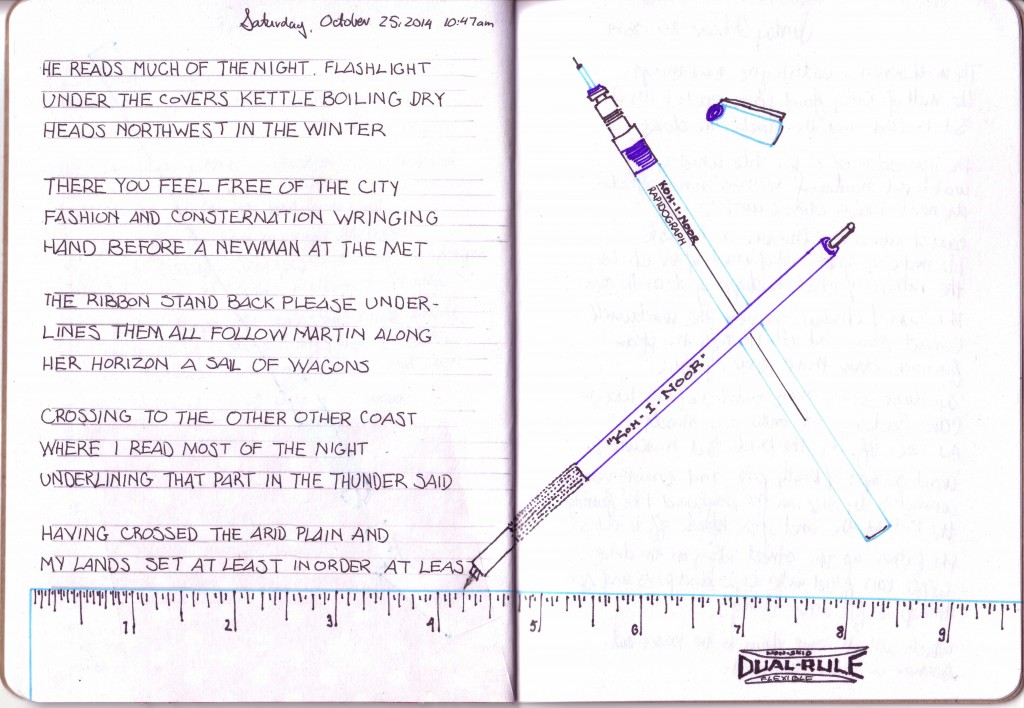 Saturday, October 25, 2014 10:47am
HE READS MUCH OF THE NIGHT. FLASHLIGHT
UNDER THE COVERS KETTLE BOILING DRY
HEADS NORTHWEST IN THE WINTER
THERE YOU FEEL FREE OF THE CITY
FASHION AND CONSTERNATION WRINGING
HAND BEFORE A NEWMAN AT THE MET
THE RIBBON STAND BACK PLEASE UNDER-
LINES THEM ALL FOLLOW MARTIN ALONG
HER HORIZON A SAIL OF WAGONS
CROSSING TO THE OTHER OTHER COAST
WHERE I READ MOST OF THE NIGHT
UNDERLINING THAT PART IN THE THUNDER SAID
HAVING CROSSED THE ARID PLAIN AND
MY LANDS SET AT LEAST IN ORDER AT LEAST
KOH-I-NOOR
RAPIDOGRAPH
"KOH-I-NOOR"
1 2 3 4 5 6 7 8 9
NON-SKID
DUAL-RULE
FLEXIBLE